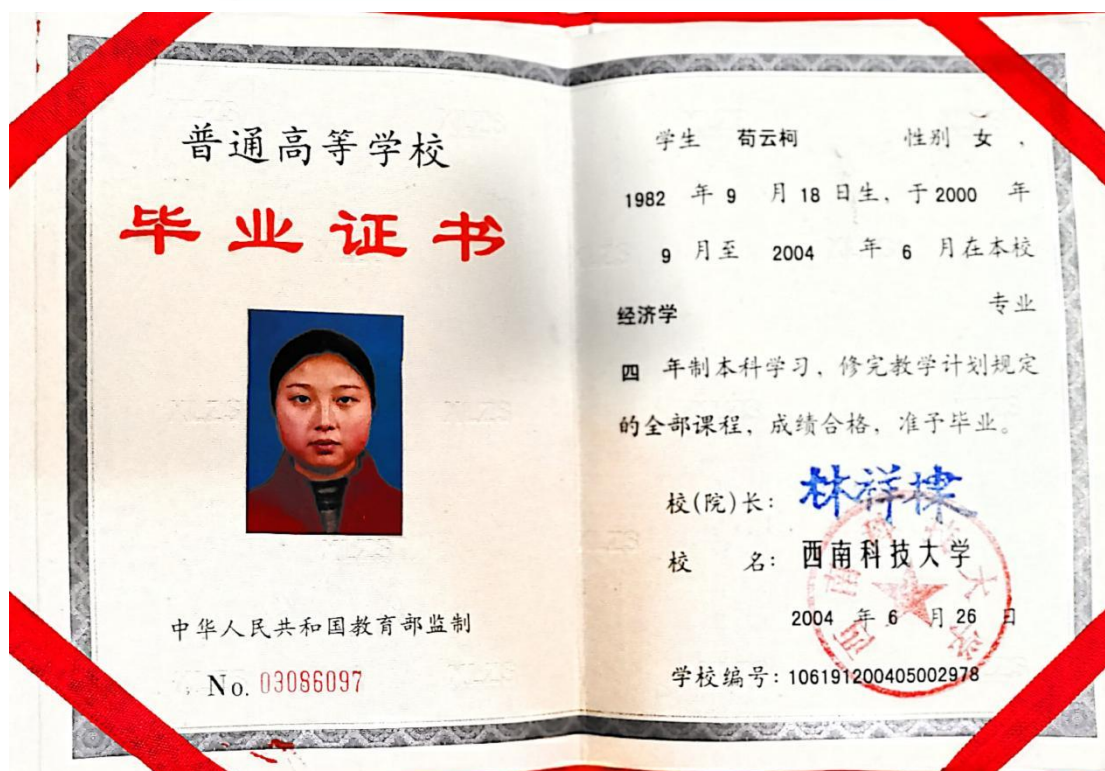 普通高等学校
毕业证书
中华人民共和国教育部监制
No. 03086097
学生 苟云柯 性别 女,
1982 年 9 月 18 日生, 于 2000 年
9 月至 2004 年 6 月在本校
经济学 专业
四 年制本科学习, 修完教学计划规定
的全部课程, 成绩合格, 准予毕业。
校(院)长: 林祥棣
校 名: 西南科技大学
2004 年 6 月 26 日
学校编号: 106191200405002978
西南科技大学